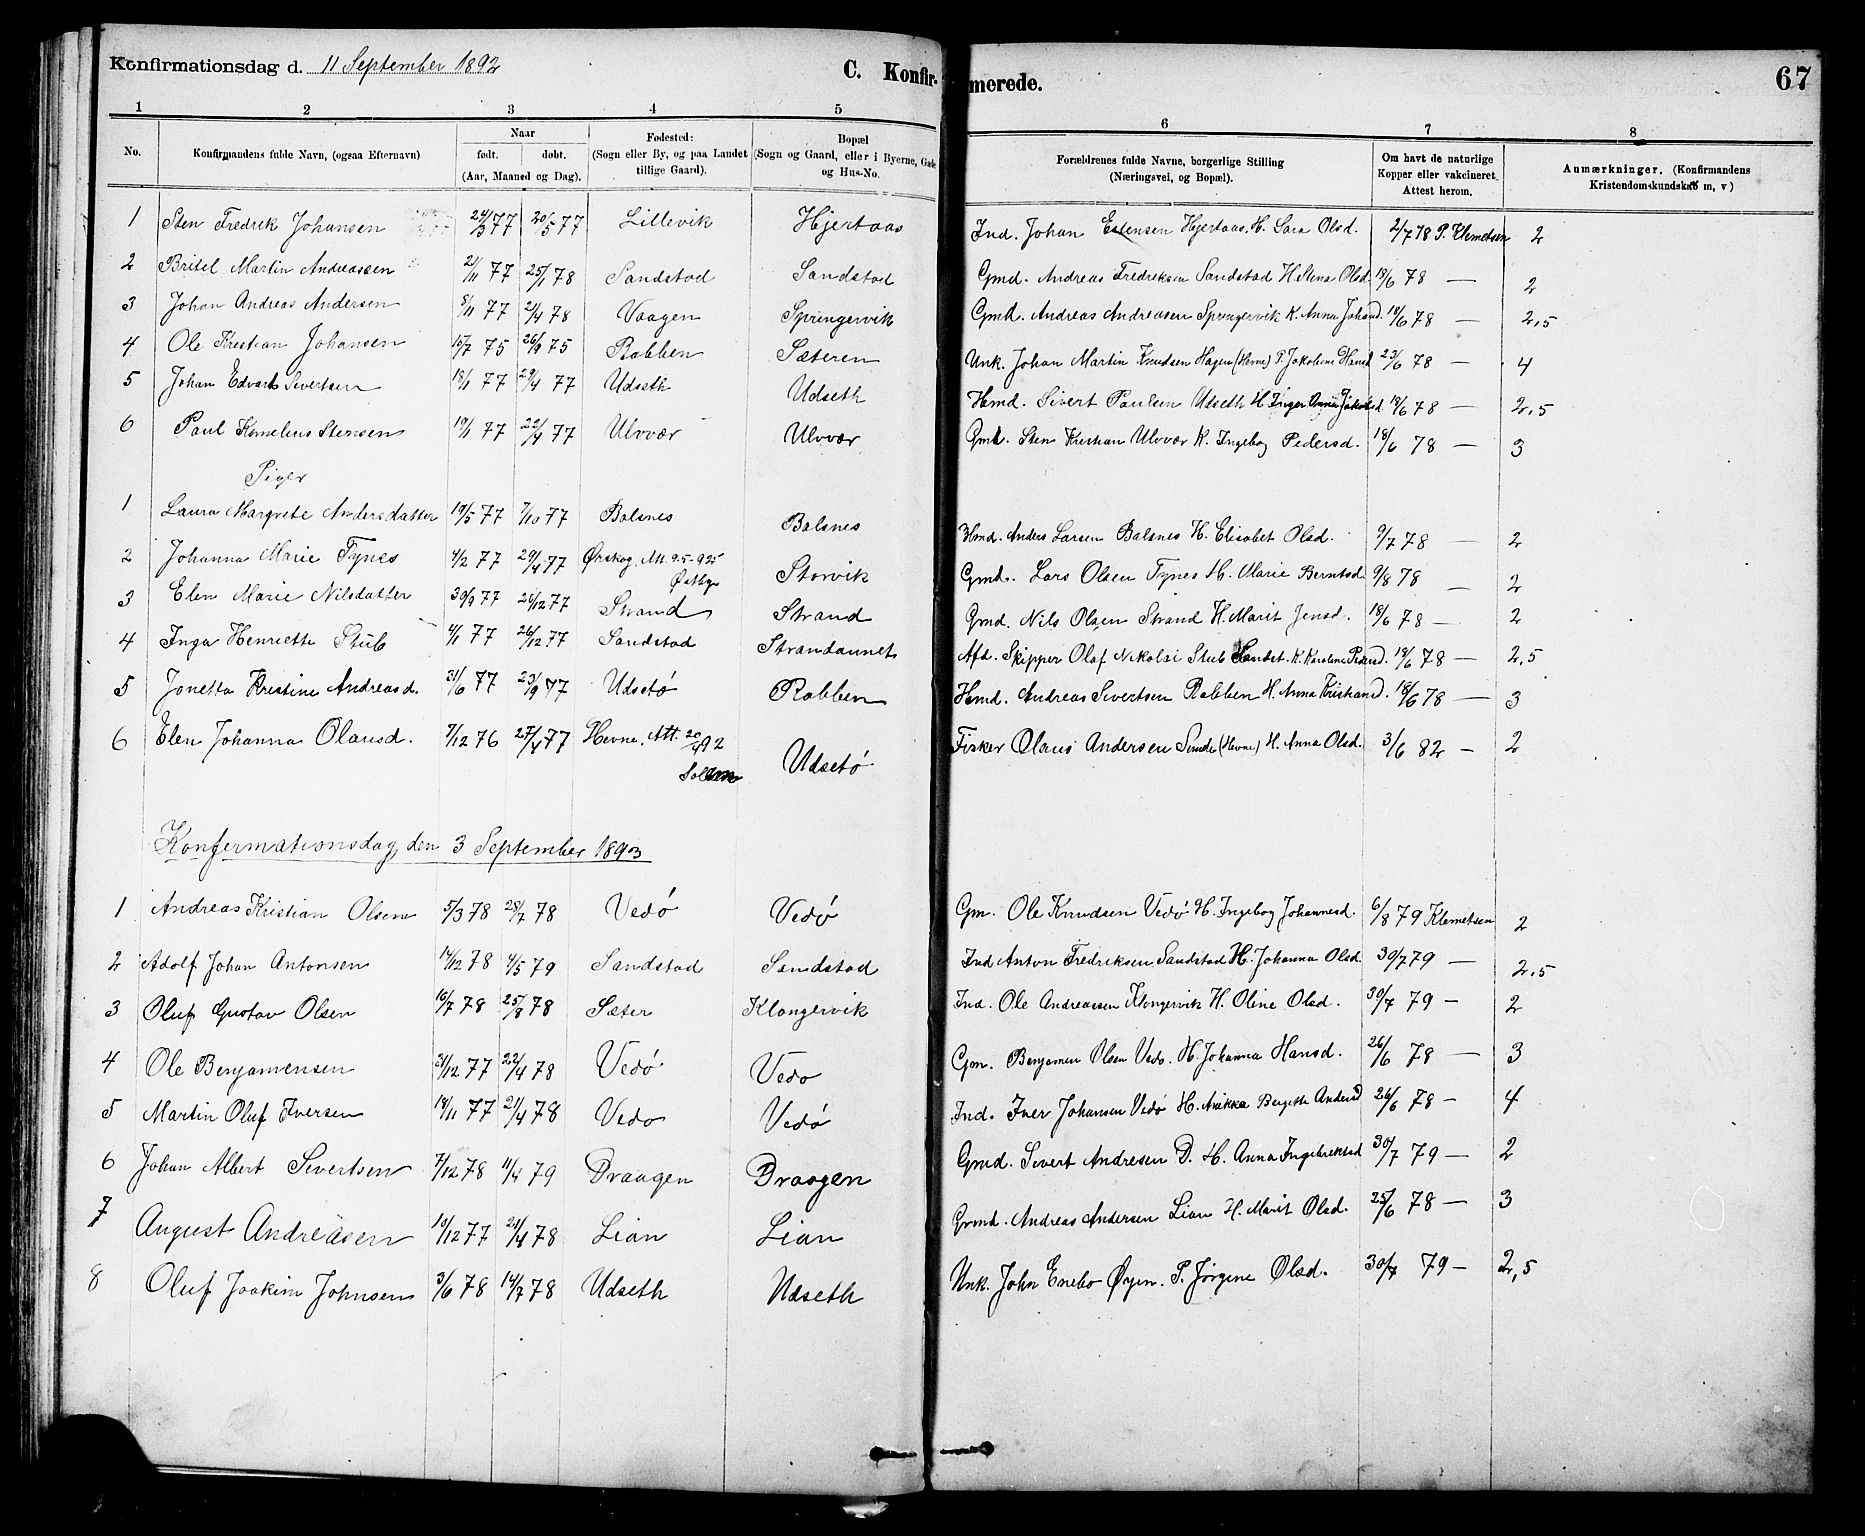 Konfirmationsdag d. 11 September 1892 C. Konfir- merede. 67
1 2 3 4 5 6 7 8
No. Konfirmandens fulde Navn, (ogsaa Efternavn) Naar født. døbt. (Aar, Maaned og Dag). Fødested: (Sogn eller By, og paa Landet tillige Gaard). Bopæl (Sogn og Gaard, eller i Byerne, Gade og Hus-No. Forældrenes fulde Navne, borgerlige Stilling (Næringsvei, og Bopæl). Om havt de naturlige Kopper eller vakcineret. Attest herom. Anmærkninger. (Konfirmandens Kristendomskundskab m, v)
1 Sten Fredrik Johansen 24/3 77 20/5 77 Lillevik Hjertaas Ind. Johan Estensen Hjertaas. H. Sara Olsd. 2/7 78 P. Klemetsen 2
2 Britel Martin Andreassen 2/11 77 25/1 78 Sandstad Sandstad Gmd. Andreas Fredriksen Sandstad H. Elena Olsd. 18/6 78 — 2
3 Johan Andreas Andersen 8/11 77 21/4 78 Vaagen Springervik Gmd. Andreas Andreasen Springervik K. Anna Johansd. 18/6 78 — 2,5
4 Ole Kristian Johansen 15/7 75 26/9 75 Rabben Sæteren Unk. Johan Martin Knudsen Hagen (Hevne) P. Jakobine Hansd 23/6 78 — 4
5 Johan Edvart Sivertsen 18/1 77 29/4 77 Udseth Udseth Hmd. Sivert Paulsen Udseth H. Inger Anna Jakobsd 18/6 78 — 2,5
6 Paul Kornelius Stensen 19/1 77 22/4 77 Ulvvær Ulvvær Gmd. Sten Kristian Ulvvær K. Ingebog Pedersd. 18/6 78 — 3
Piger
1 Laura Margrete Andersdatter 19/5 77 7/10 77 Balsnes Balsnes Hmd. Anders Larsen Balsnes H. Elisabet Olsd. 9/7 78 — 2
2 Johanna Marie Tynes 4/2 77 29/4 77 Ørskog, Att. 9.5-92 Storvik Gmd. Lars Olsen Tynes H. Marie Berntsd. 9/8 78 — 2
3 Elen Marie Nilsdatter 30/9 77 26/12 77 Strand Strand Gmd. Nils Olsen Strand H. Marit Jensd. 18/6 78 — 2
4 Inga Henriette Stub 4/1 77 26/12 77 Sandstad Strandaunet Afd. Skipper Olaf Nikolai Stub Sandst. K. Karoline Pedersd. 18/6 78 — 2,5
5 Jonetta Kristine Andreasd. 31/6 77 23/9 77 Udsetø Rabben Hmd. Andreas Sivertsen Rabben H. Anna Kristiansd. 18/6 78 — 3
6 Elen Johanna Olausd. 7/12 76 27/4 77 Hevne. Att. 20/4 92 Udsetø Fisker Olaus Andersen Sunde (Hevne) H. Anna Olsd. 3/6 82 — 2
Konfermationsdag den 3 September 1893
1 Andreas Kristian Olsen 5/3 78 28/7 78 Vedø Vedø Gm. Ole Knudsen Vedø H. Ingebog Johannesd. 6/8 79 Klemetsen 2
2 Adolf Johan Antonsen 14/12 78 4/5 79 Sandstad Sandstad Ind Anton Fredriksen Sandstad H. Johanna Olsd. 30/7 79 — 2,5
3 Oluf Gustav Olsen 16/7 78 25/8 78 Sæter Klongervik Ind. Ole Andreassen Klongervik H. Oline Olsd. 30/7 79 — 2
4 Ole Benjamensen 31/12 77 22/4 78 Vedø Vedø Gm. Benjamen Olsen Vedø. H. Johanna Hansd. 26/6 78 — 3
5 Martin Oluf Iversen 18/11 77 21/4 78 Vedø Vedø Ind. Iver Johansen Vedø H. Anikka Bergitte Andersd 26/6 78 — 4
6 Johan Albert Sivertsen 7/12 78 11/4 79 Draagen Draagen Gmd. Sivert Andresen D. H. Anna Ingebriktsd 30/7 79 — 2
7 August Andreäsen 10/12 77 21/4 78 Lian Lian Grmd. Andreas Andersen Lian H. Marit Olsd. 25/6 78 — 3
8 Oluf Joakim Johnsen 3/6 78 14/7 78 Udseth Udseth Unk. John Enebo Øyen. P. Jørgine Olsd. 30/7 79 — 2,5